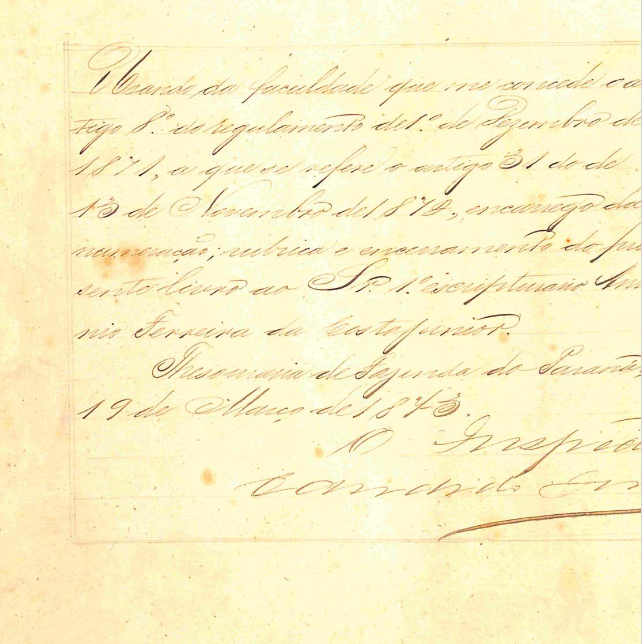 Uzando, da faculdade que me concede o a
tigo 8.º do regulamento de 1.º de Dezembro de
1871, a que se refere o artigo 31 do de
13 de Novembro de 1872, encarrego da
numeração, rubrica e encerramento do pre
sente livro ao Sr. 1.º escripturario An
nio Ferreira da Costa Junior.
Thesouraria de Fazenda do Paraná,
19 de Março de 1873.
O Inspec